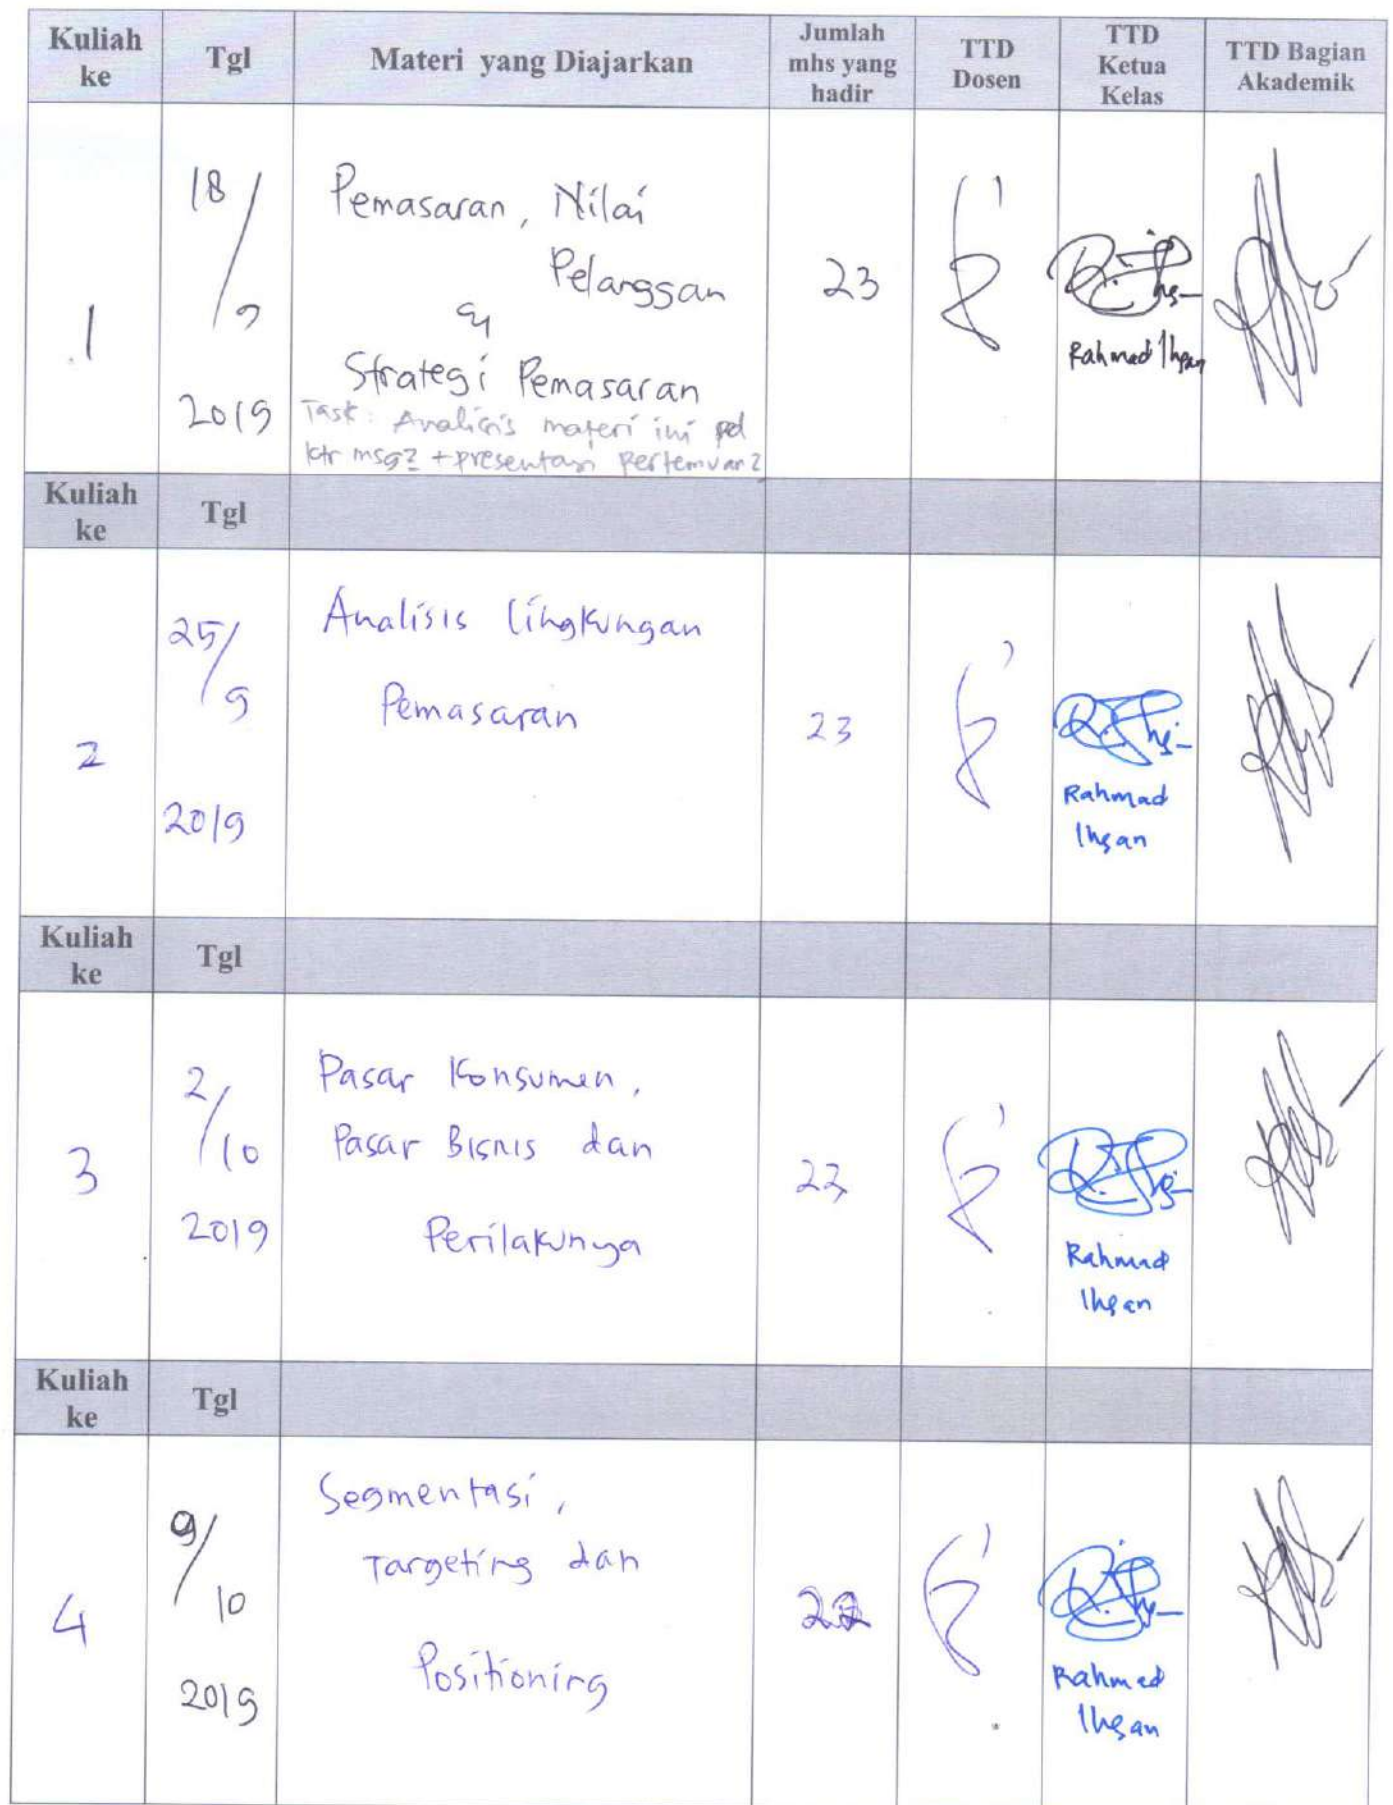 Kuliah ke Tgl Materi yang Diajarkan Jumlah mhs yang hadir TTD Dosen TTD Ketua Kelas TTD Bagian Akademik
1
18/9
2019
Pemasaran, Nilai
Pelanggan
&
Strategi Pemasaran
Task: Analisis materi ini pd
ktr msg2 + presentasi pertemuan 2
23
Rahmad Ihsan
Kuliah ke Tgl
2
25/9
2019
Analisis Lingkungan
Pemasaran
23
Rahmad
Ihsan
Kuliah ke Tgl
3
2/10
2019
Pasar Konsumen,
Pasar Bisnis dan
Perilakunya
Rahmad
Ihsan
Kuliah ke Tgl
4
9/10
2019
Segmentasi,
Targeting dan
Positioning
Rahmad
Ihsan